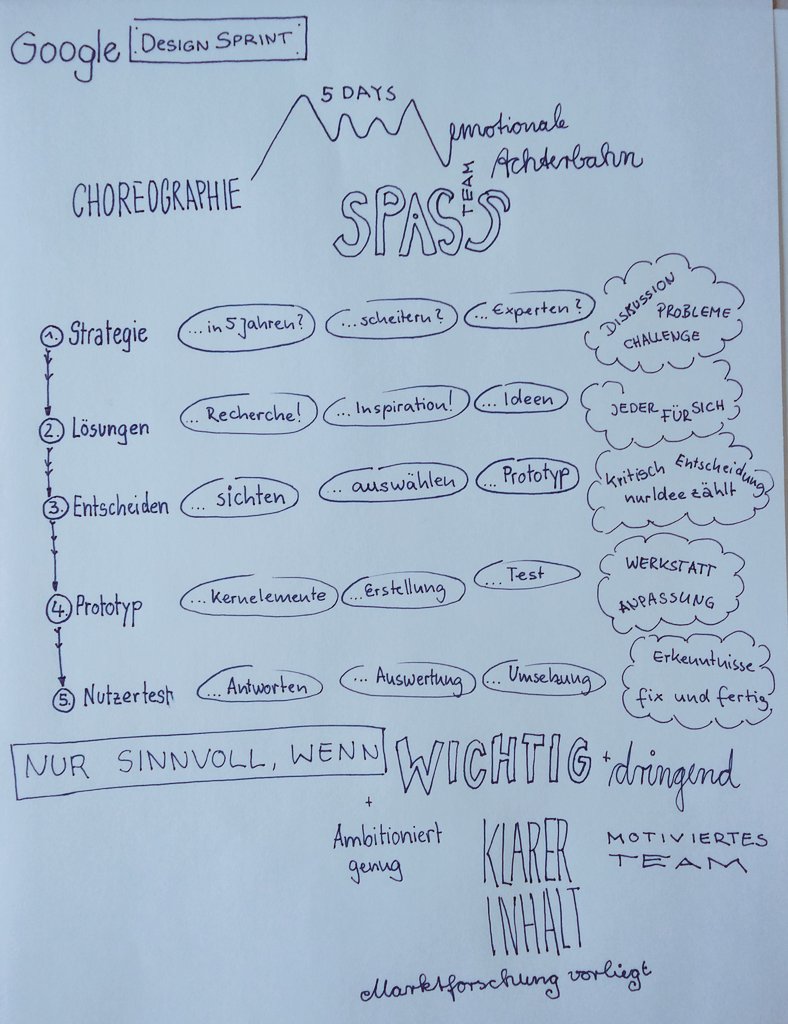 Google DESIGN SPRINT
5 DAYS
emotionale
Achterbahn
CHOREOGRAPHIE
TEAM
SPASS
1. Strategie ...in 5 Jahren? ...scheitern? ...Experten? DISKUSSION PROBLEME CHALLENGE
2. Lösungen ...Recherche! ...Inspiration! ...Ideen JEDER FÜR SICH
3. Entscheiden ...sichten ...auswählen ...Prototyp Kritisch Entscheidung nur Idee zählt
4. Prototyp ...Kernelemente ...Erstellung ...Test WERKSTATT ANPASSUNG
5. Nutzertest ...Antworten ...Auswertung ...Umsetzung Erkenntnisse fix und fertig
NUR SINNVOLL, WENN WICHTIG + dringend
+
Ambitioniert
genug
KLARER
INHALT
MOTIVIERTES
TEAM
Marktforschung vorliegt